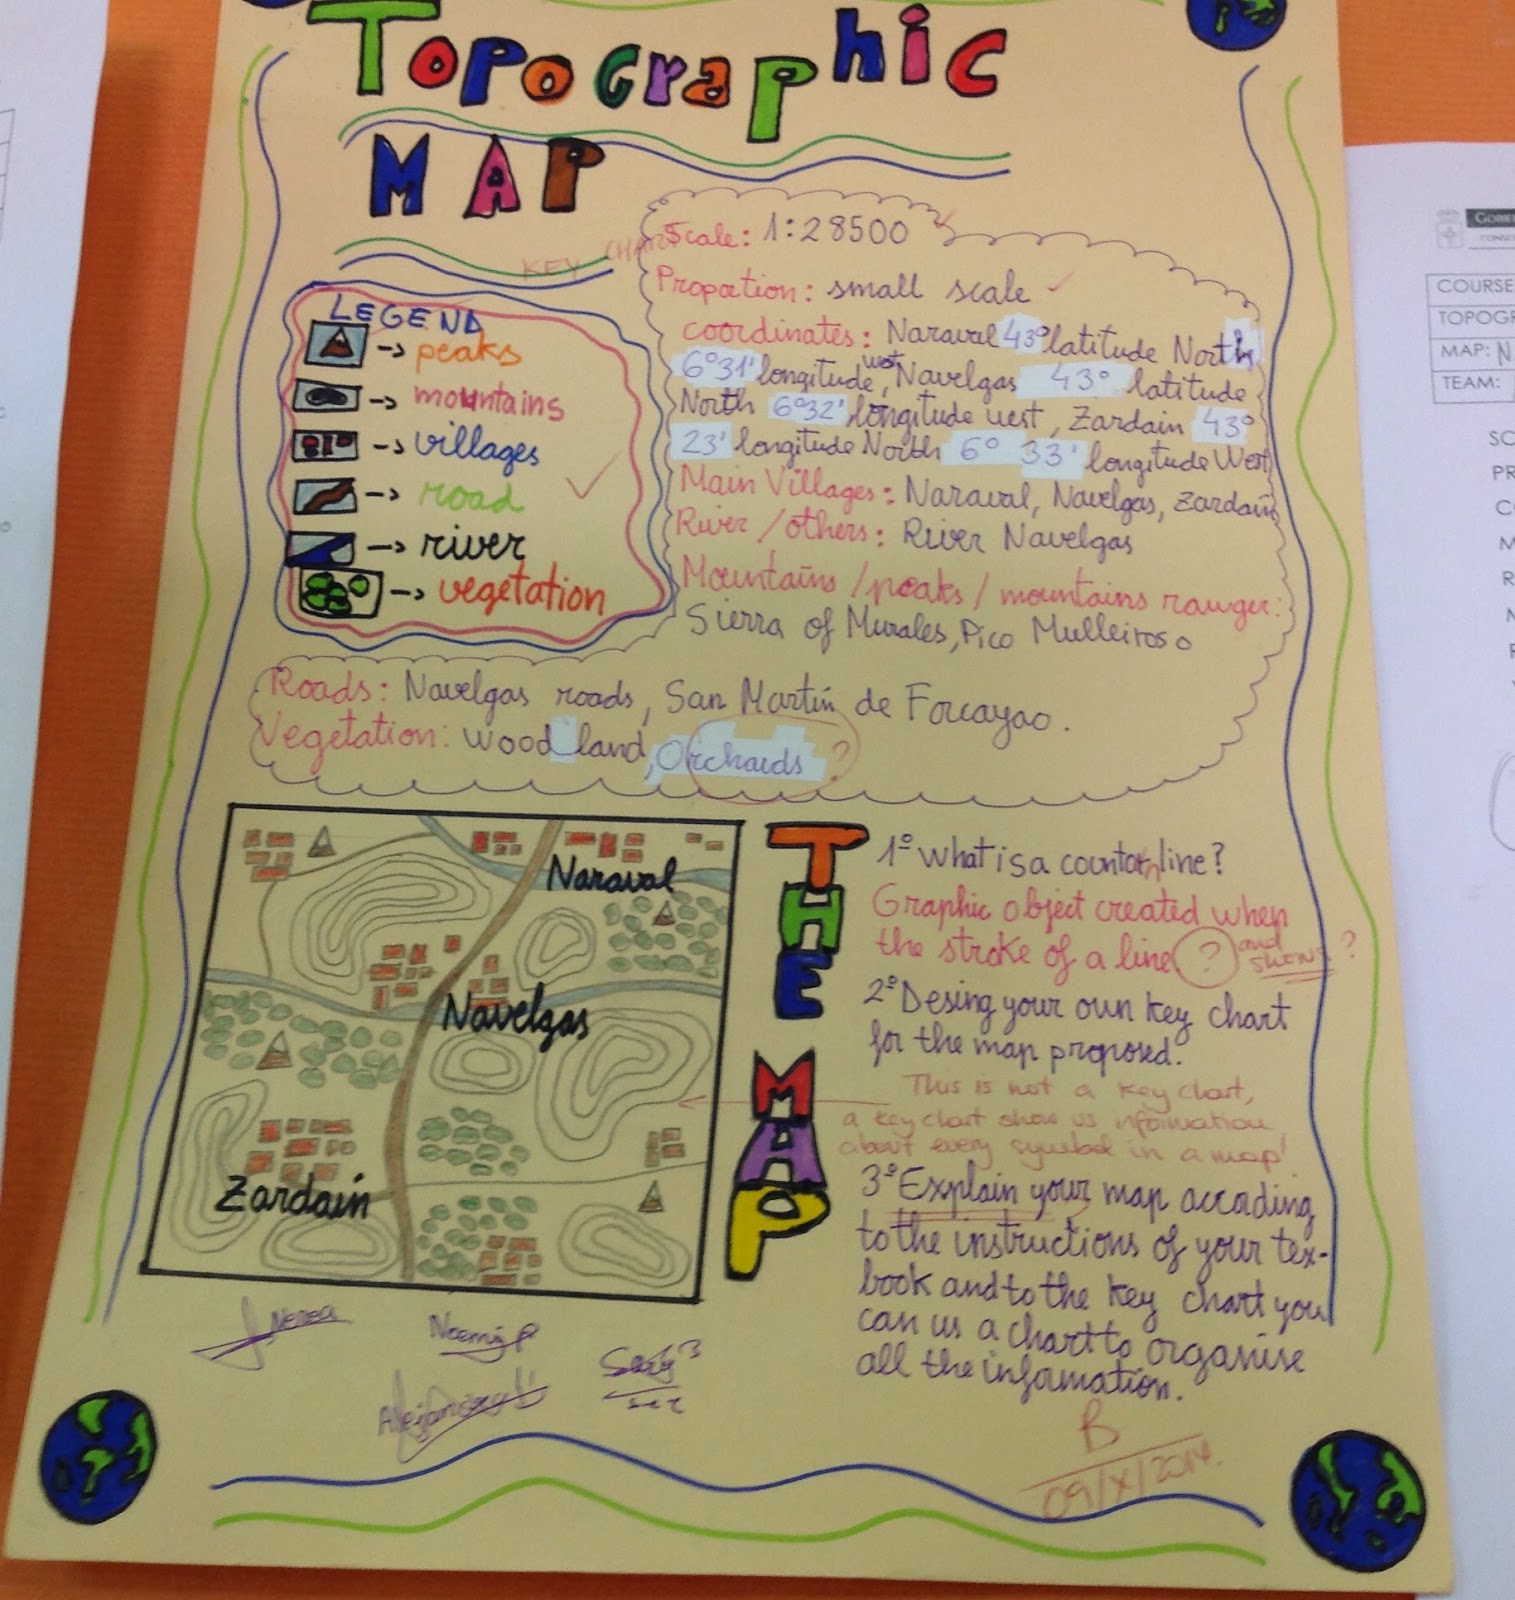 Topographic
MAP
KEY CHART
LEGEND
peaks
mountains
villages
road
river
vegetation
Scale: 1:28500
Proportion: small scale
coordinates: Naraval 43° latitude North
6°31' longitude west, Navelgas 43° latitude
North 6°32' longitude uest, Zardain 43°
23' longitude North 6° 33' longitude West
Main Villages: Naraval, Navelgas, Zardain
River / others: River Navelgas
Mountains / peaks / mountains ranger:
Sierra of Murales, Pico Mulleiroso
Roads: Navelgas roads, San Martín de Forcayao.
Vegetation: woodland, Orchards ?
Naraval
Navelgas
Zardain
THE MAP
1º What is a countor line?
Graphic object created when
the stroke of a line ? and
show ?
2º Desing your own key chart
for the map proposed.
This is not a key chart,
a key chart show us information
about every symbol in a map!
3º Explain your map accading
to the instructions of your tex-
book and to the key chart you
can us a chart to organise
all the information.
Nerea
Noemi P
B
09/X/2014.
GOBIE
CONSE
COURSE
TOPOGR
MAP: N
TEAM:
SC
PR
CO
M
R